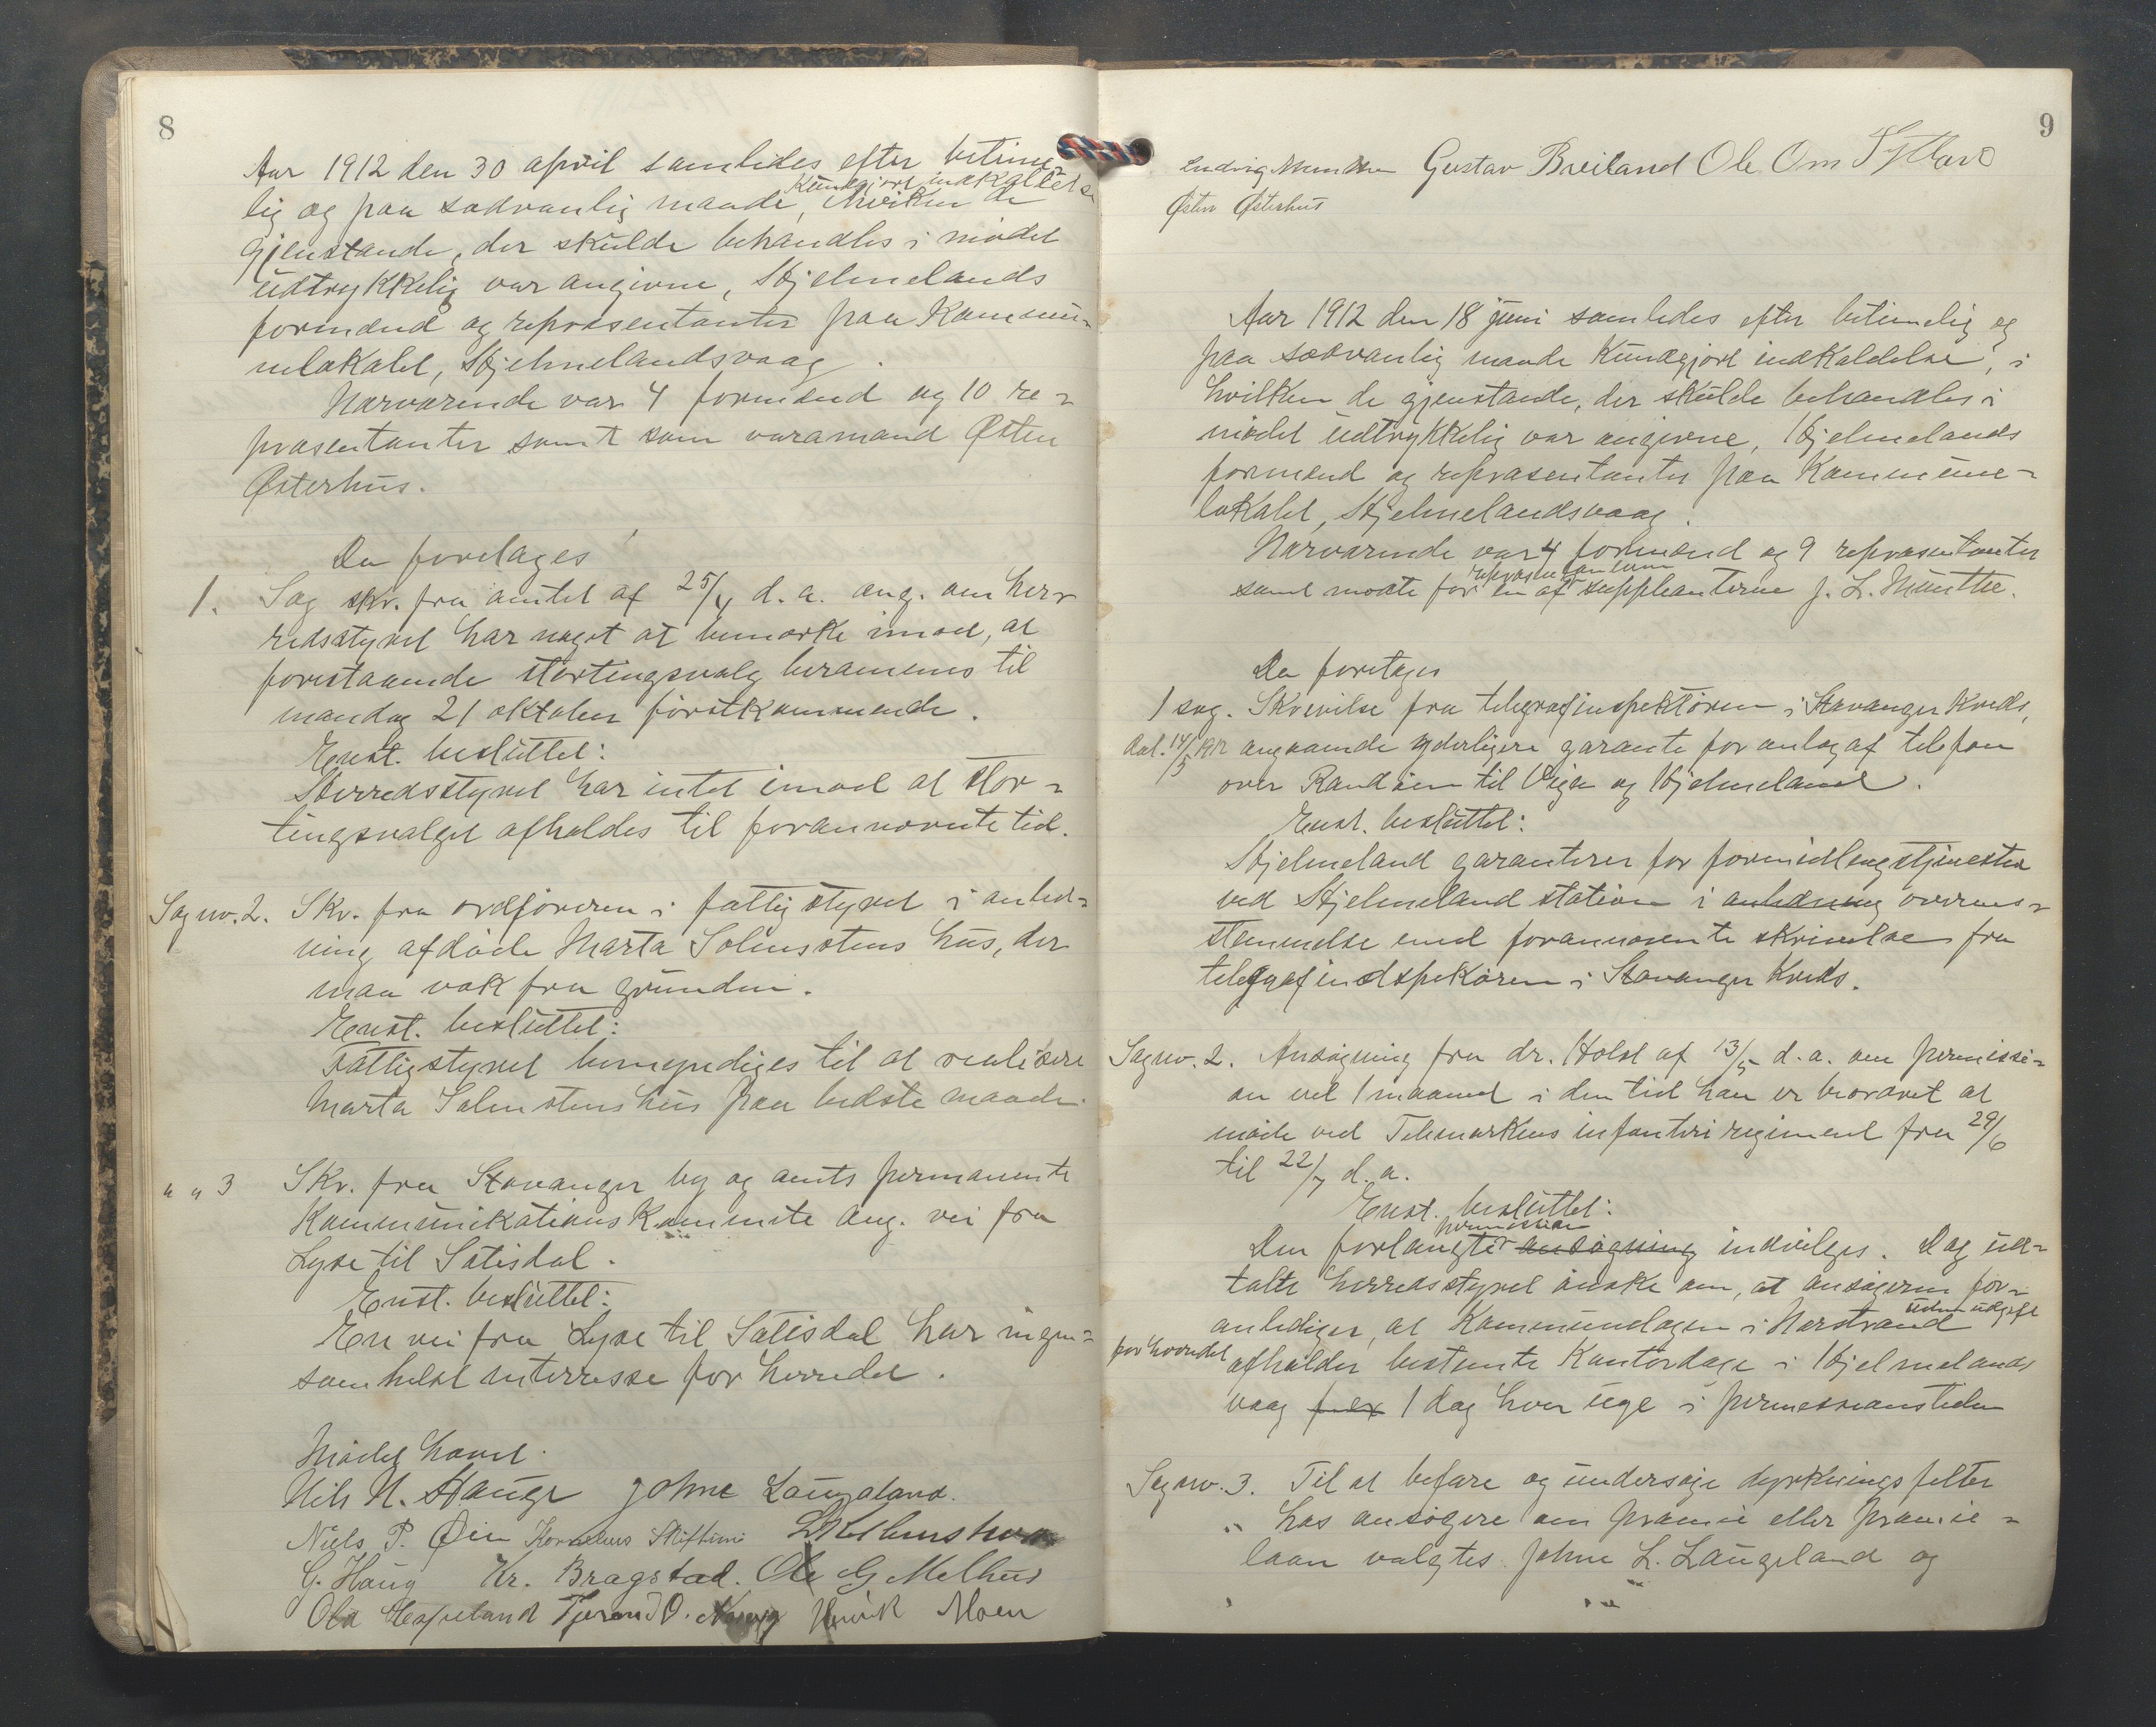 8
Aar 1912 den 30 april samledes efter betime-
lig og paa sædvanlig maade kundgjort indkaldelse, i hvilken de
gjenstande, der skulde behandles i mødet
udtrykkelig var angivne, Hjelmelands
formænd og repræsentanter paa Kommu-
nelokalet, Hjelmelandsvaag.
Nærværende var 4 formænd og 10 re-
præsentanter samt som varamand Østen
Østerhus.
Da foretages
1. Sag skr. fra amtet af 25/4 d.a. ang. om her-
redsstyret har noget at bemærke imod, at
forestaaende stortingsvalg berammes til
mandag 21 oktober førstkommende.
Enst. besluttet:
Herredsstyret har intet imod at stor-
tingsvalget afholdes til forannævnte tid.
Sag nr. 2. Skr. fra ordføreren i fattigstyret i anled-
ning afdøde Marta Solmstens hus, der
maa væk fra grunden.
Enst. besluttet:
Fattigstyret bemyndiges til at realisere
Marta Solmstens hus paa bedste maade.
" " 3 Skr. fra Stavanger by og amts permanente
Kommunikationskommite ang. vei fra
Lyse til Sætisdal.
Enst. besluttet:
En vei fra Lyse til Sætisdal har ingen-
somhelst interresse for herredet.
Mødet hævet.
Nils N. Hauge Johne Laugaland.
Niels P. Øien Kornelius Skiftun
G. Haug Kr. Bragstad. Ole G Melhus
Ola Hespeland Tjerand O. Henrik Moen
9
Ludvig Gustav Breiland Ole Om
Østen Østerhus
Aar 1912 den 18 juni samledes efter betimelig og
paa sædvanlig maade kundgjort indkaldelse, i
hvilken de gjenstande, der skulde behandles i
mødet udtrykkelig var angivne, Hjelmelands
formænd og repræsentanter paa Kommune-
lokalet, Hjelmelandsvaag.
Nærværende var 4 formænd og 9 repræsentanter
samt mødte for repræsentanterne en af suppleanterne J. L. Munthe.
Da foretages
1 sag. Skrivelse fra telegrafinspektøren i Stavanger Kreds,
dat. 14/5 1912 angaaende yderligere garante for anlæg af telefon
over Randøen til Viga og Hjelmeland.
Enst. besluttet:
Hjelmeland garanterer for formidlingstjenesten
ved Hjelmeland station i anledning overens-
stemmelse med forannævnte skrivelse fra
telegrafindspekøren i Stavanger Kreds.
Sag nr. 2. Ansøgning fra dr. Holst af 13/5 d.a. om permissi-
on vel 1 maaned i den tid han er beordret at
møde ved Telemarkens infanteri regiment fra 29/6
til 22/7 d.a.
Enst. besluttet:
Den forlangte permission ansøgning indvilges. Dog ud-
talte herredsstyret ønske om, at ansøgeren for-
anlediger, at Kommunelægen i Nærstrand uden udgift
for herredet afholder bestemte Kontordage i Hjelmelands
vaag f. ex 1 dag hver uge i permissionstiden
Sag nr. 3. Til at befare og undersøge dyrkningsfelter
hos ansøgere om præmie eller præmie-
laan valgtes Johne L. Laugeland og